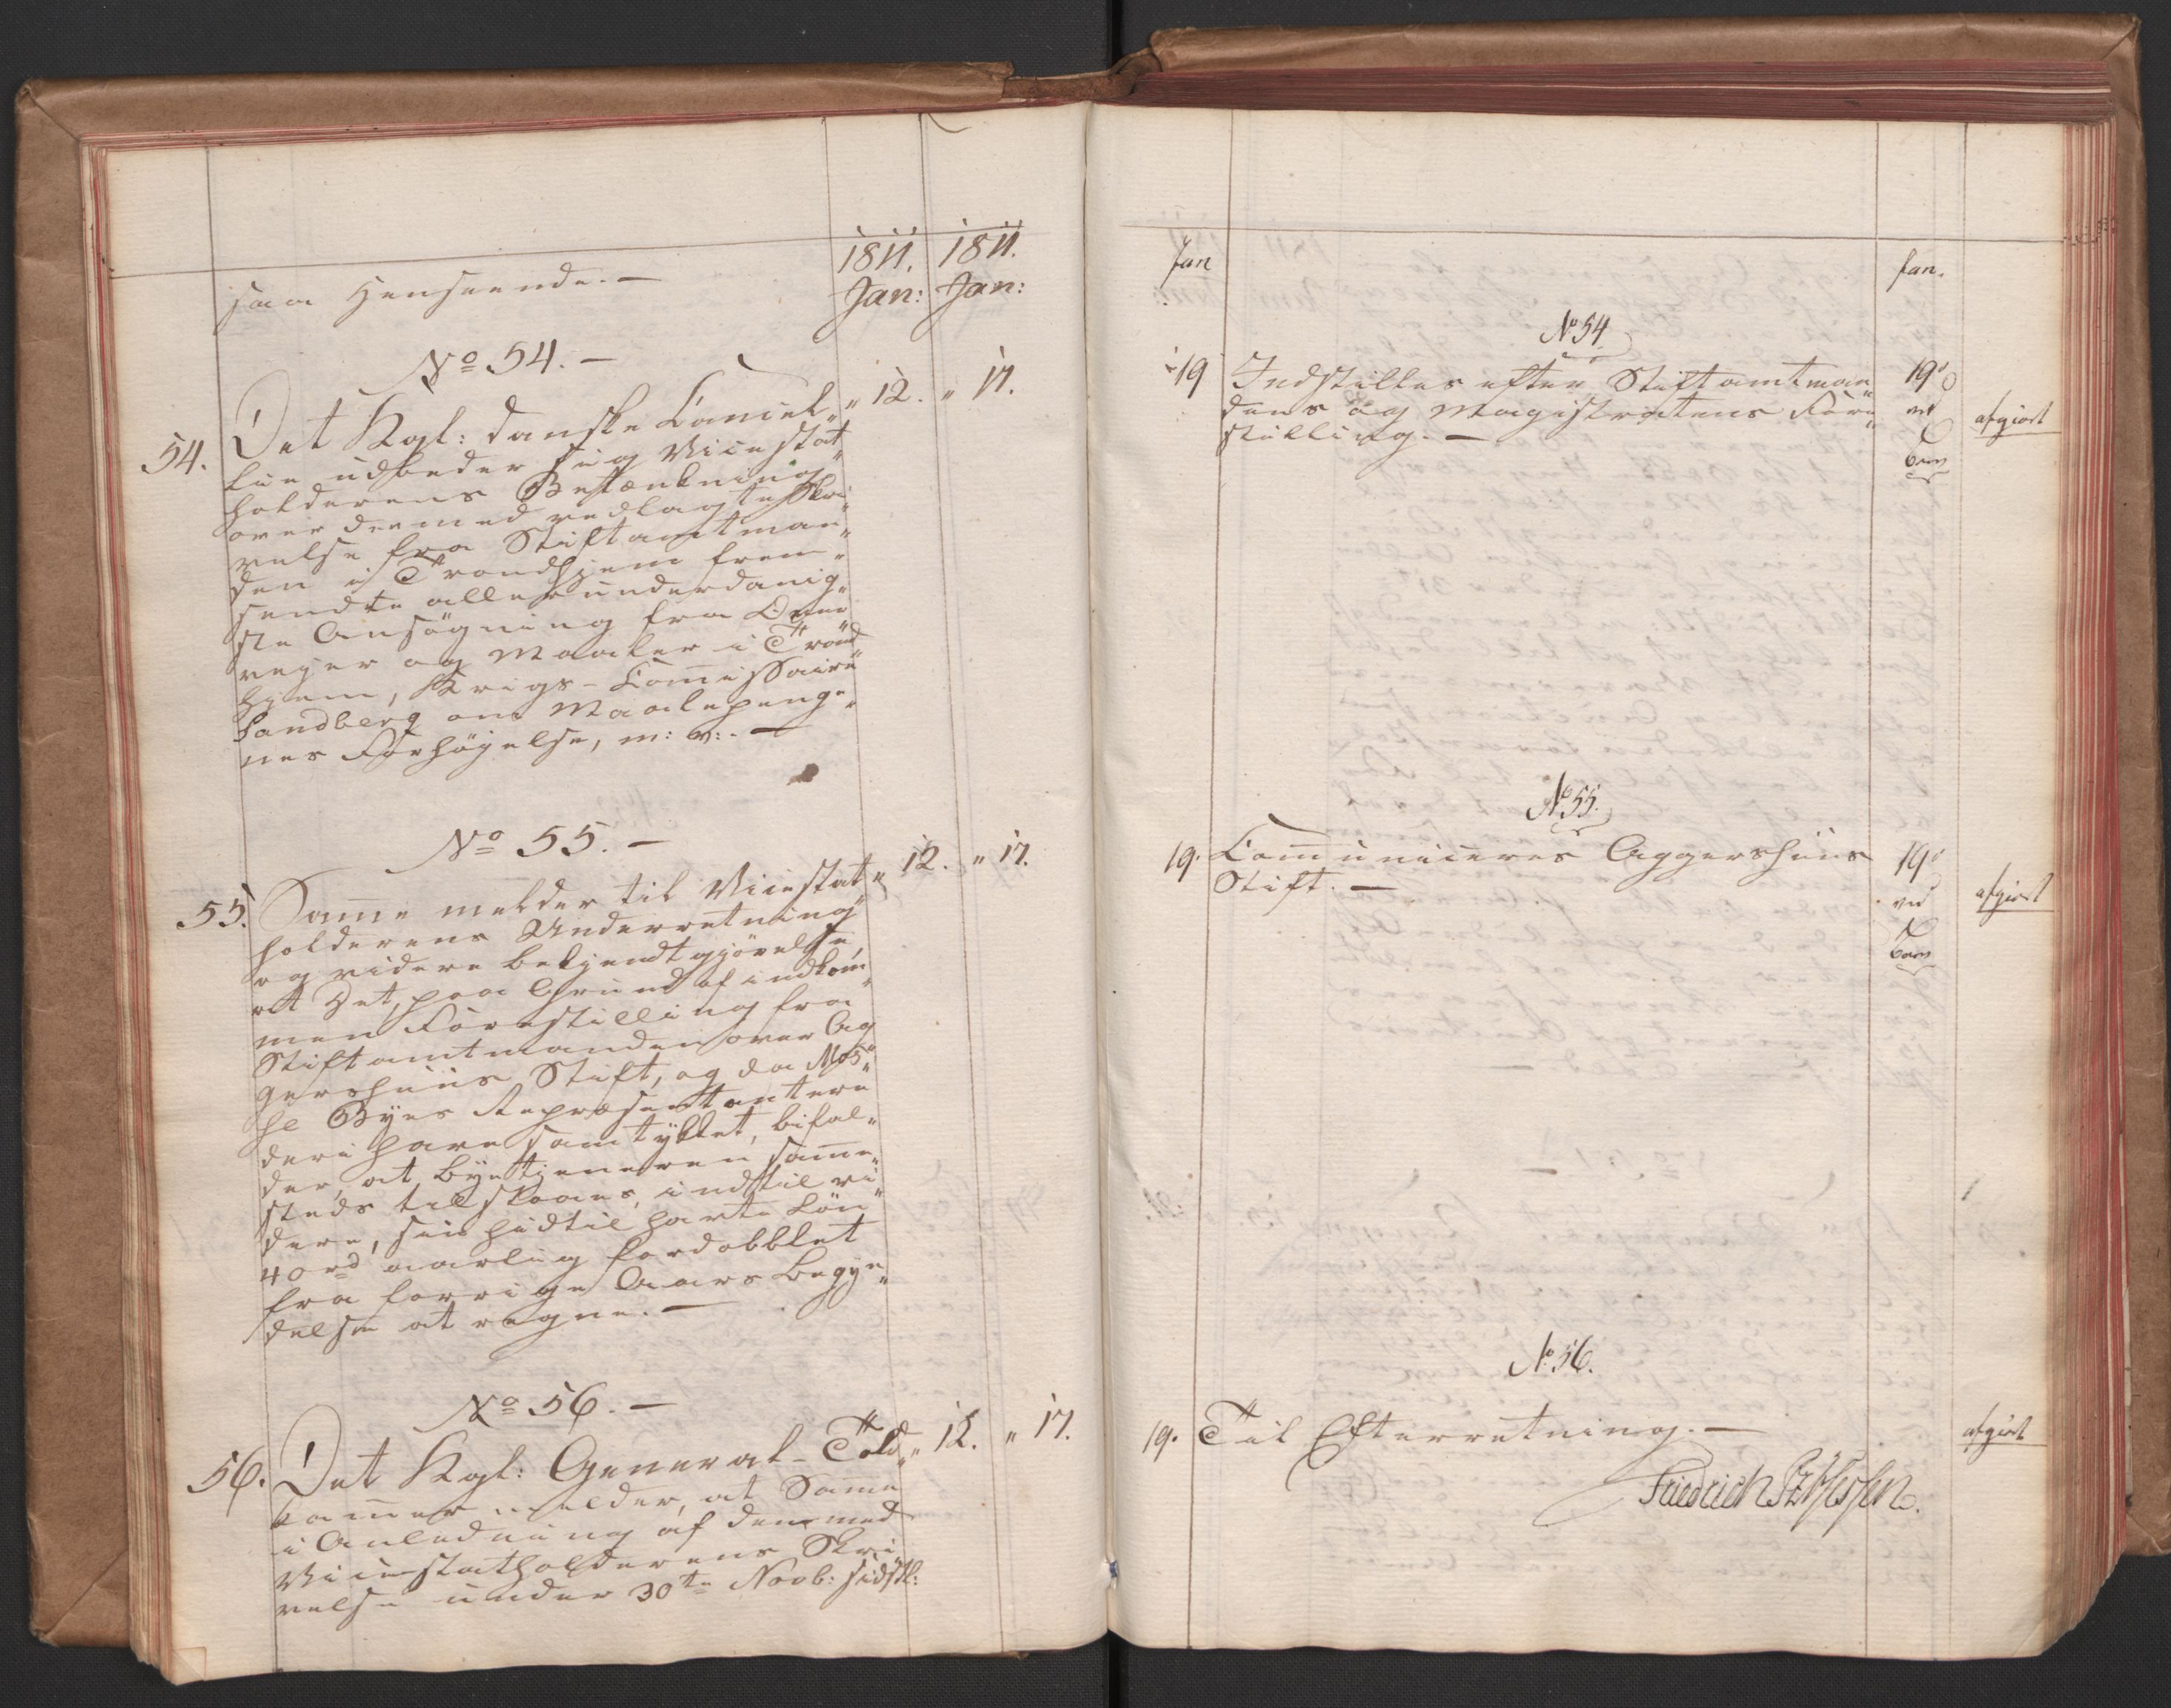 1811. 1811.
Jan: Jan:
saa Henseende. —
No 54. —
54. Det Kgl: danske Cancel„ „ 12. „ 17.
lie udbeder sig Vicestat„
holderens Betænkning
over dermed vedlagte Skri„
velse fra Stiftamtman„
den i Trondhjem frem„
sendte allerunderdanig„
ste Ansøgning fra Over„
vejer og Maaler i Trond„
hjem, Krigs-Com̅issaire
Sandberg om Maalepenge„
nes Forhøyelse, m: v:. —
No 55. —
55. Sam̅e melder til Vicestat„ „ 12. „ 17.
holderens Underretning
og videre bekjendtgjørelse,
at Det, paa Grund af indkom̅„
men Forestilling fra
Stiftamtmanden over Ag„
gershuus Stift, og da Mos„
se Byes Repræsentantere
deri have samtykket, bifal„
der, at Byetjeneren sam̅e„
steds tilstaaes, indtil vi„
dere, sin hidtil havte Løn
40 rd aarlig fordobblet
fra forrige Aars Begyn„
delse at regne. —
No 56. —
56. Det Kgl: General-Told„ „ 12. „ 17.
kam̅er melder, at Sam̅e
i Anledning af den med
Vicestatholderens Skri„
velse under 30te Novb: sidstl:
Jan Jan.
No 54
19 Indstilles efter Stiftamtman„ 19
dens og Magistratens Fore„ ved
stilling. — afgiort
No 55.
19. Com̅uniceres Aggershuus 19
Stift. — ved
afgiort
No 56.
19. Til Efterretning. — afgiort
Friedrich Pz v Hessen.